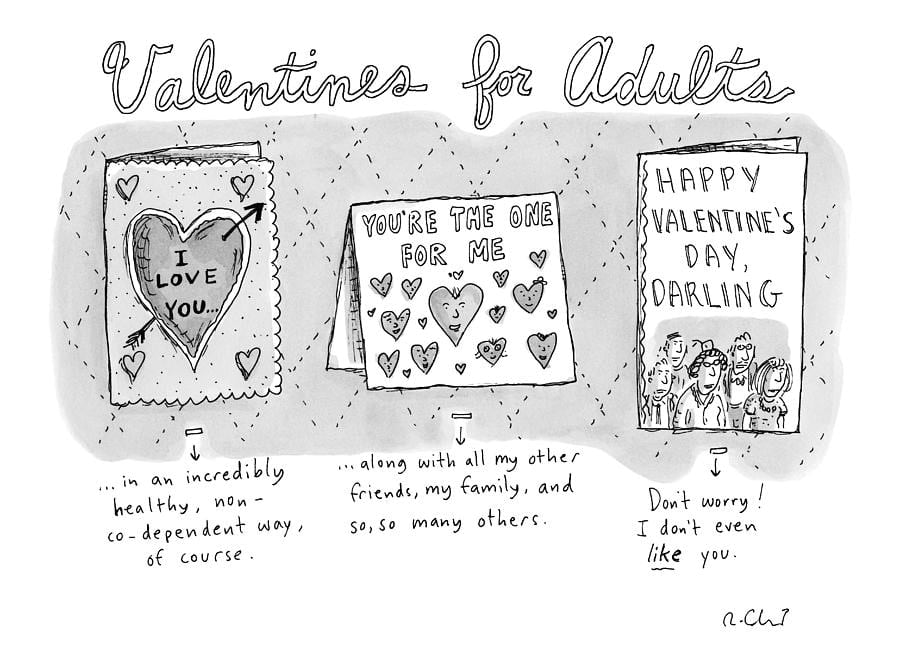 Valentines for Adults
I
LOVE
YOU...
...in an incredibly
healthy, non-
co-dependent way,
of course.
YOU'RE THE ONE
FOR ME
...along with all my other
friends, my family, and
so, so many others.
HAPPY
VALENTINE'S
DAY,
DARLING
Don't worry!
I don't even
like you.
R. Chast